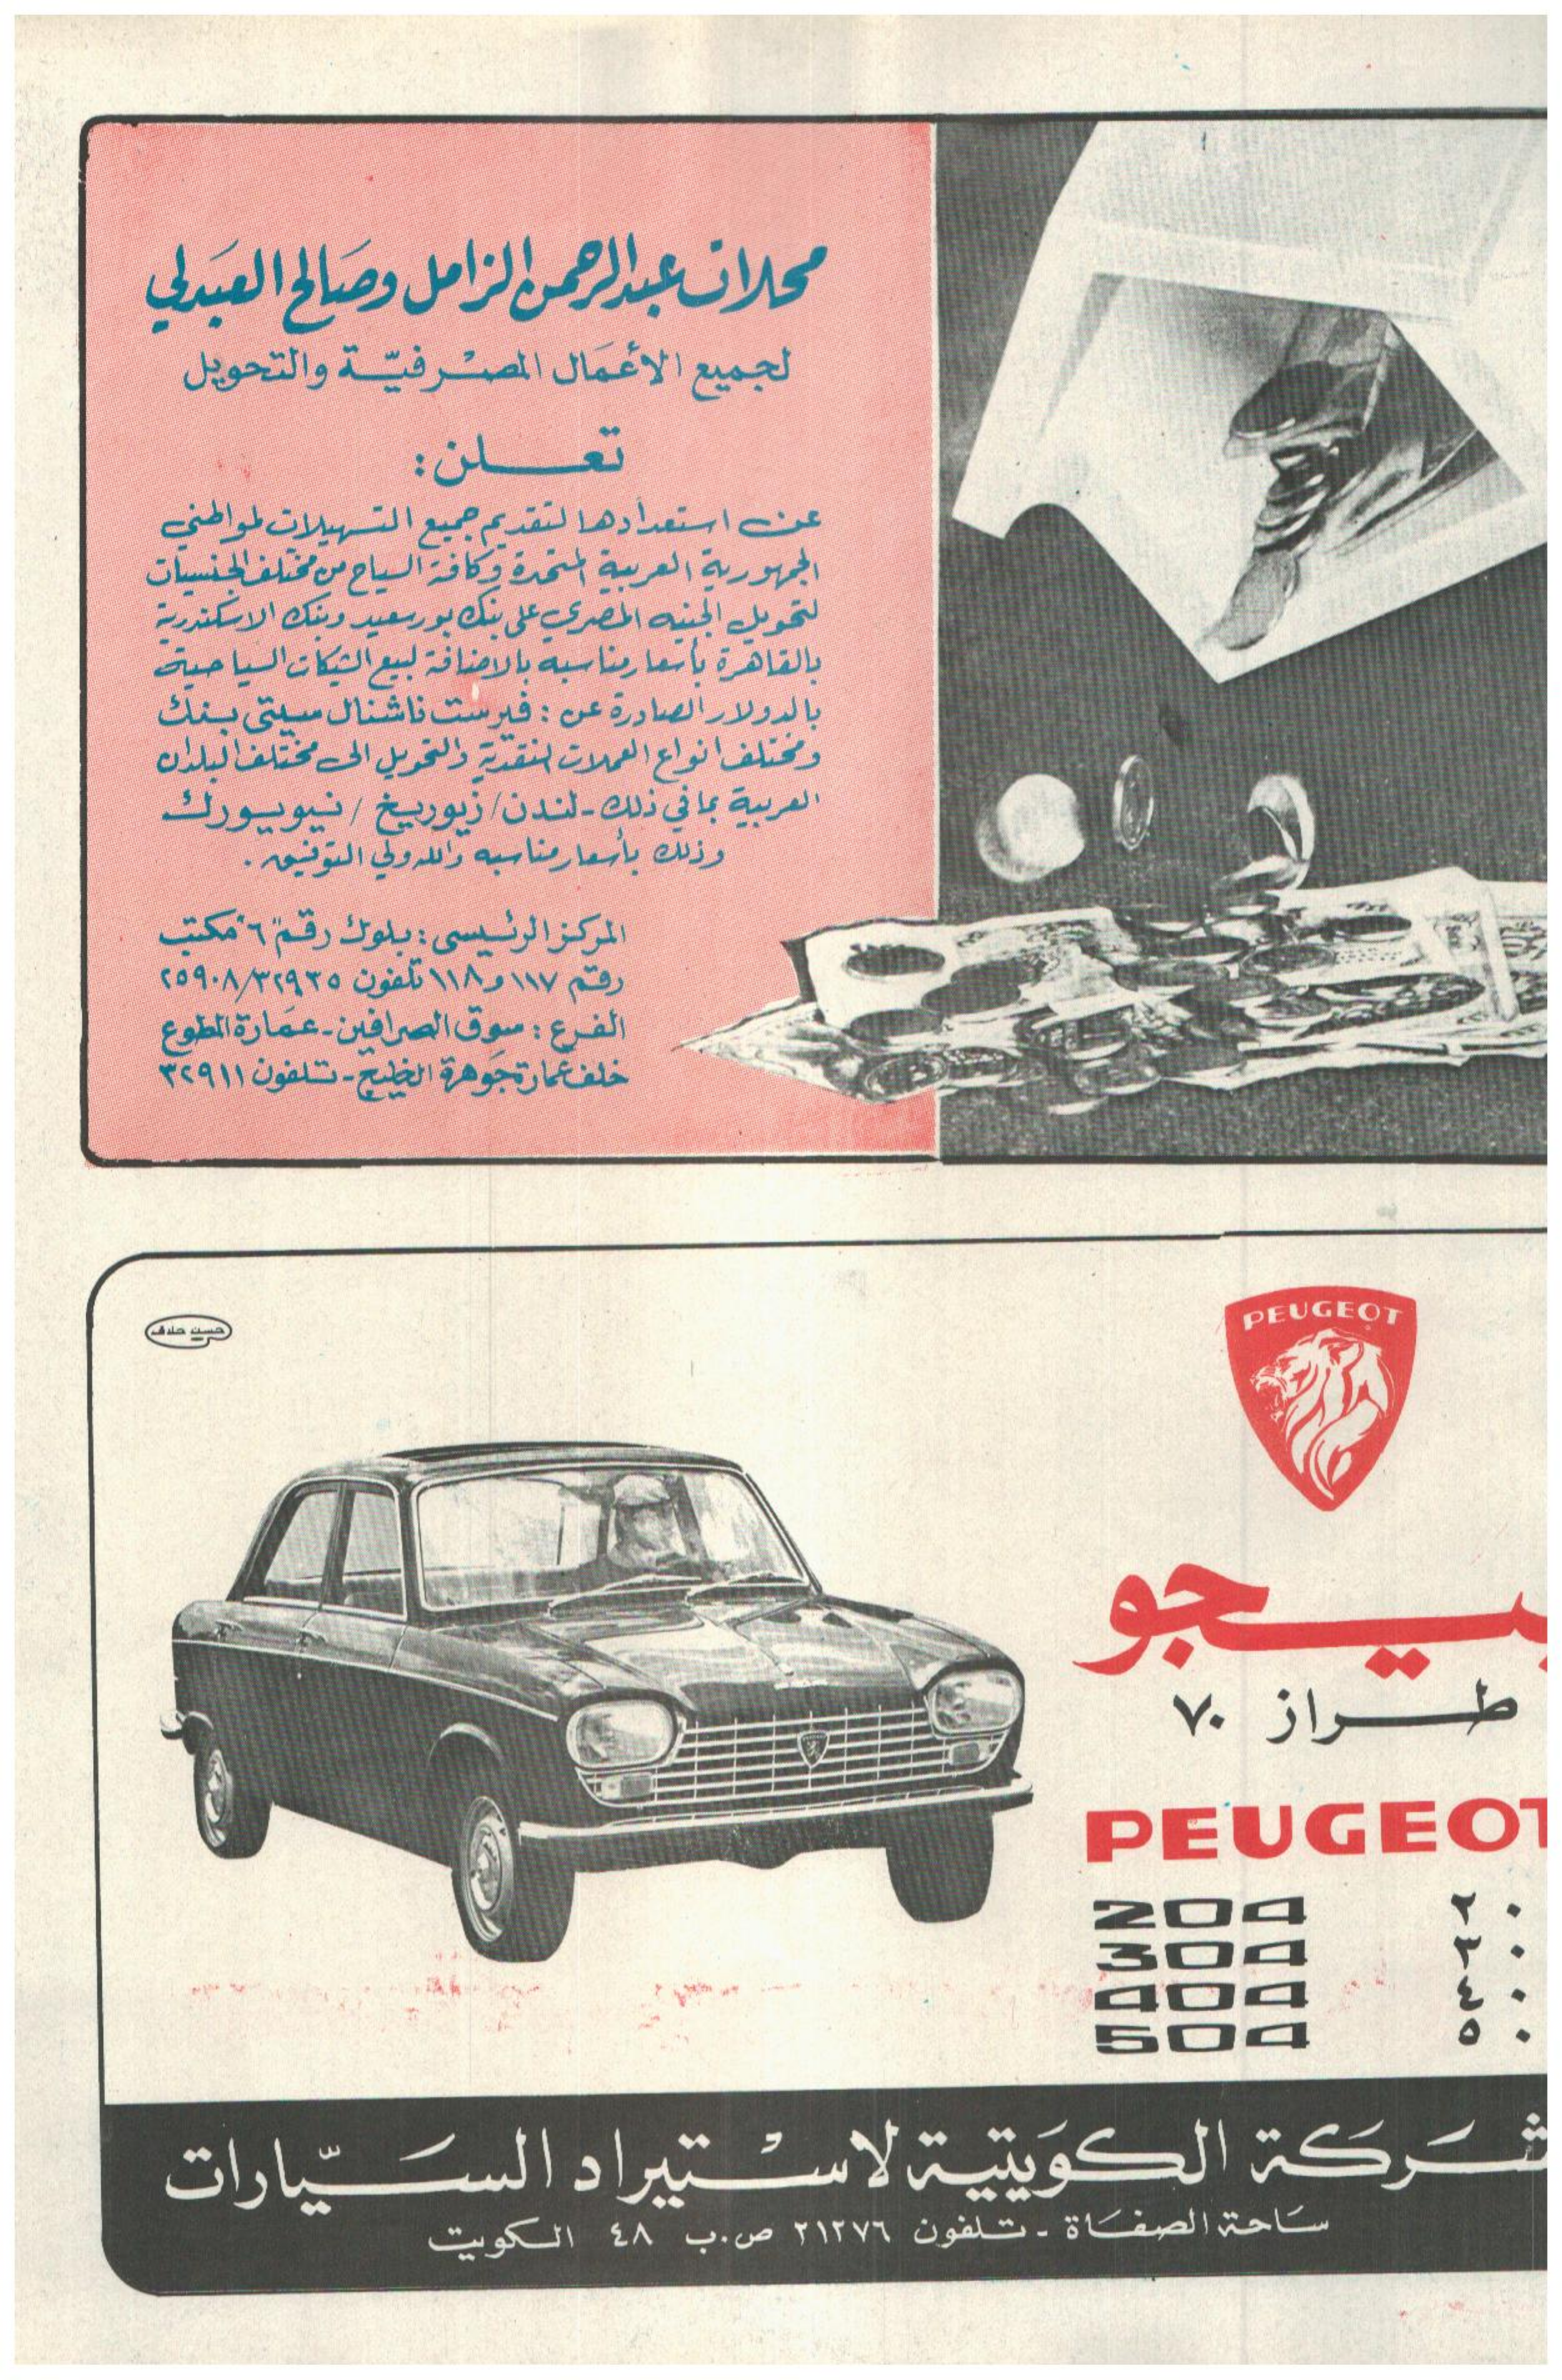 محلات عبدالرحمن الزامل وصالح العبدلي
لجميع الأعمال المصرفية والتحويل
تعلن :
عن استعدادها لتقديم جميع التسهيلات لمواطني
الجمهورية العربية المتحدة وكافة السياح من مختلف الجنسيات
لتحويل الجنيه المصري على بنك بورسعيد وبنك الاسكندرية
بالقاهرة بأسعار مناسبه بالاضافة لبيع الشيكات السياحية
بالدولار الصادرة عن : فيرست ناشنال سيتي بنك
ومختلف انواع العملات النقدية والتحويل الى مختلف البلدان
العربية بما في ذلك - لندن / زيوريخ / نيويورك
وذلك بأسعار مناسبه والله ولي التوفيق .
المركز الرئيسى : بلوك رقم "٦" مكتب
رقم ١١٧ و ١١٨ تلفون ٢٥٩٠٨/٣٢٩٣٥
الفرع : سوق الصرافين - عمارة المطوع
خلف عمارة جوهرة الخليج - تلفون ٣٢٩١١
حسين حلاق
PEUGEOT
بيجو
طراز ٧٠
PEUGEOT
204 ٢٠
304 ٣٠
404 ٤٠
504 ٥٠
شركة الكويتية لاستيراد السيارات
ساحة الصفاة - تلفون ٢١٢٧٦ ص.ب ٤٨ الكويت